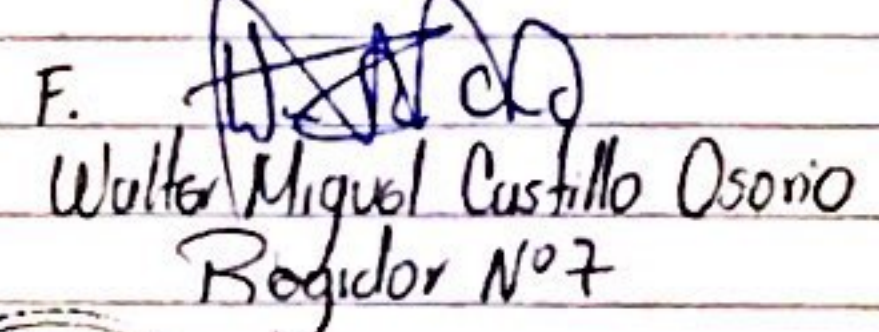 F.
Walter Miguel Castillo Osorio
Regidor Nº 7